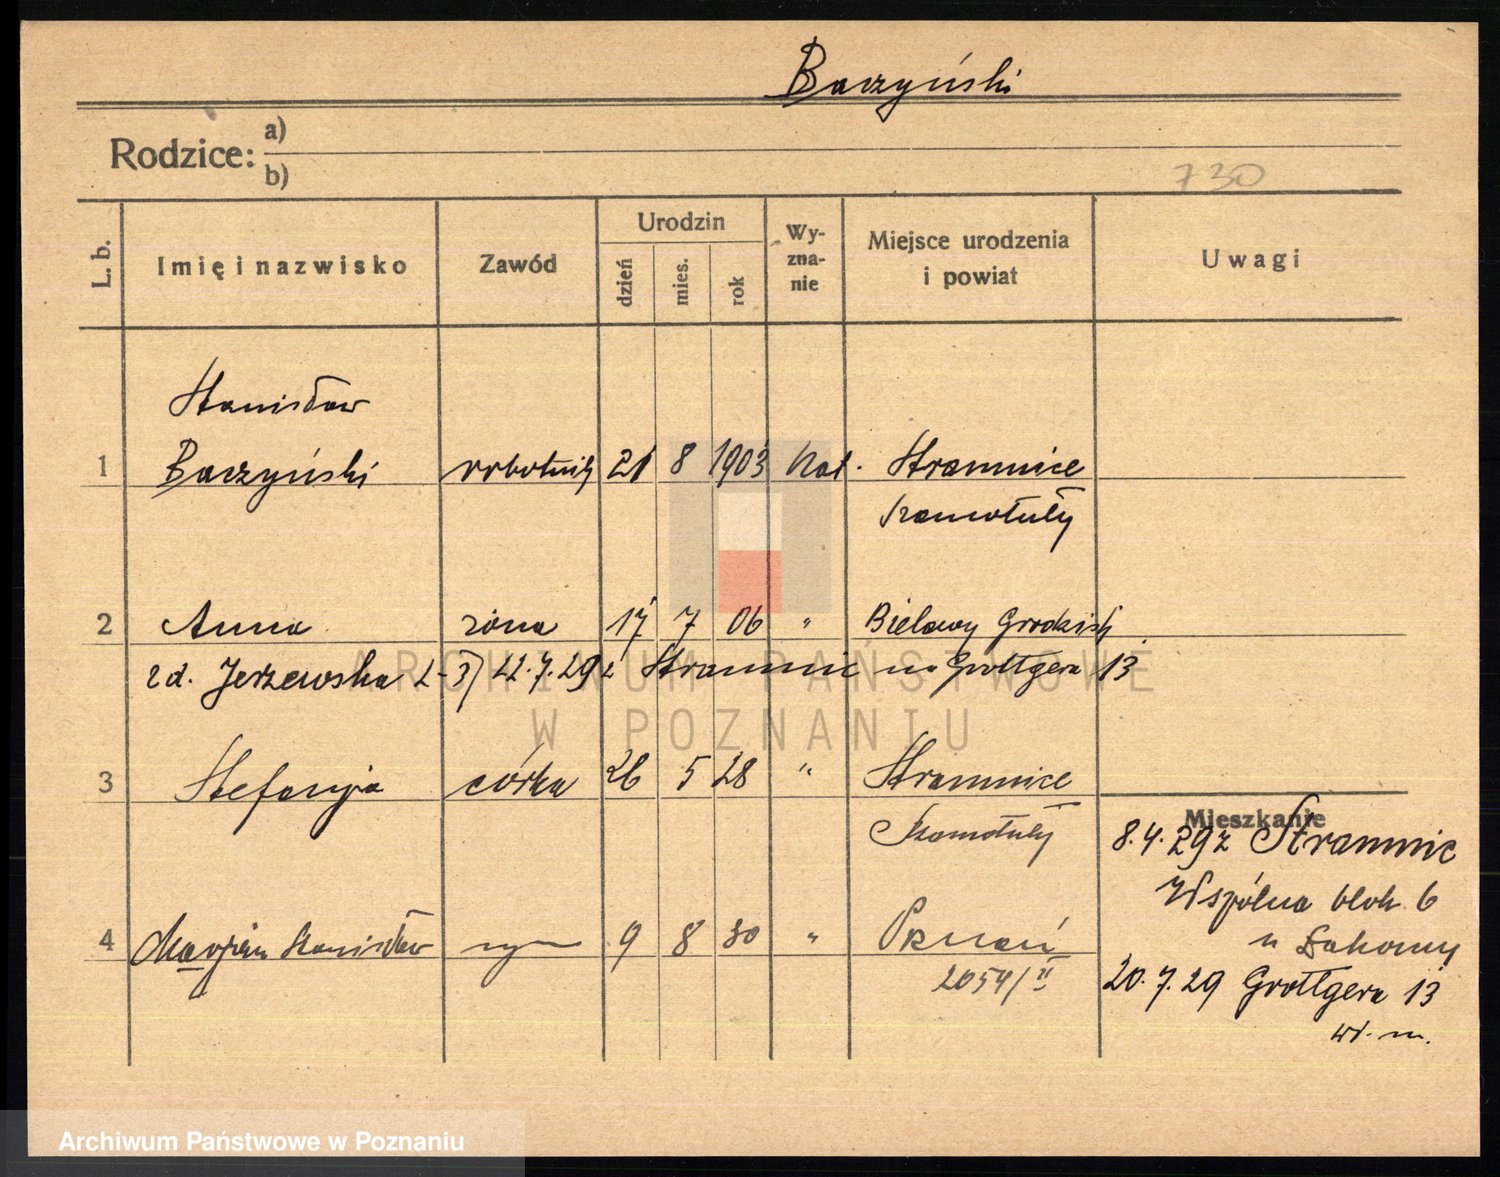 Baczyński
Rodzice: a)
b)
730
L. b. Imię i nazwisko Zawód Urodzin dzień mies. rok Wy-zna-nie Miejsce urodzenia i powiat Uwagi
Stanisław
1 Baczyński robotnik 21 8 1903 Kat. Stramnice
Szamotuły
2 Anna żona 17 7 06 " Bielawy Grodzisk
zd. Jerzewska 2-3) 22.7.29 z Stramnic na Grottgera 13
3 Stefanja córka 26 5 28 " Stramnice
Szamotuły
Mieszkanie
8.4.29 z Stramnic
Wspólna blok 6
u
4 Marjan Stanisław syn 9 8 30 " Poznań
2054/II
20.7.29 Grottgera 13
w. m.
ARCHIWUM PAŃSTWOWE
W POZNANIU
Archiwum Państwowe w Poznaniu